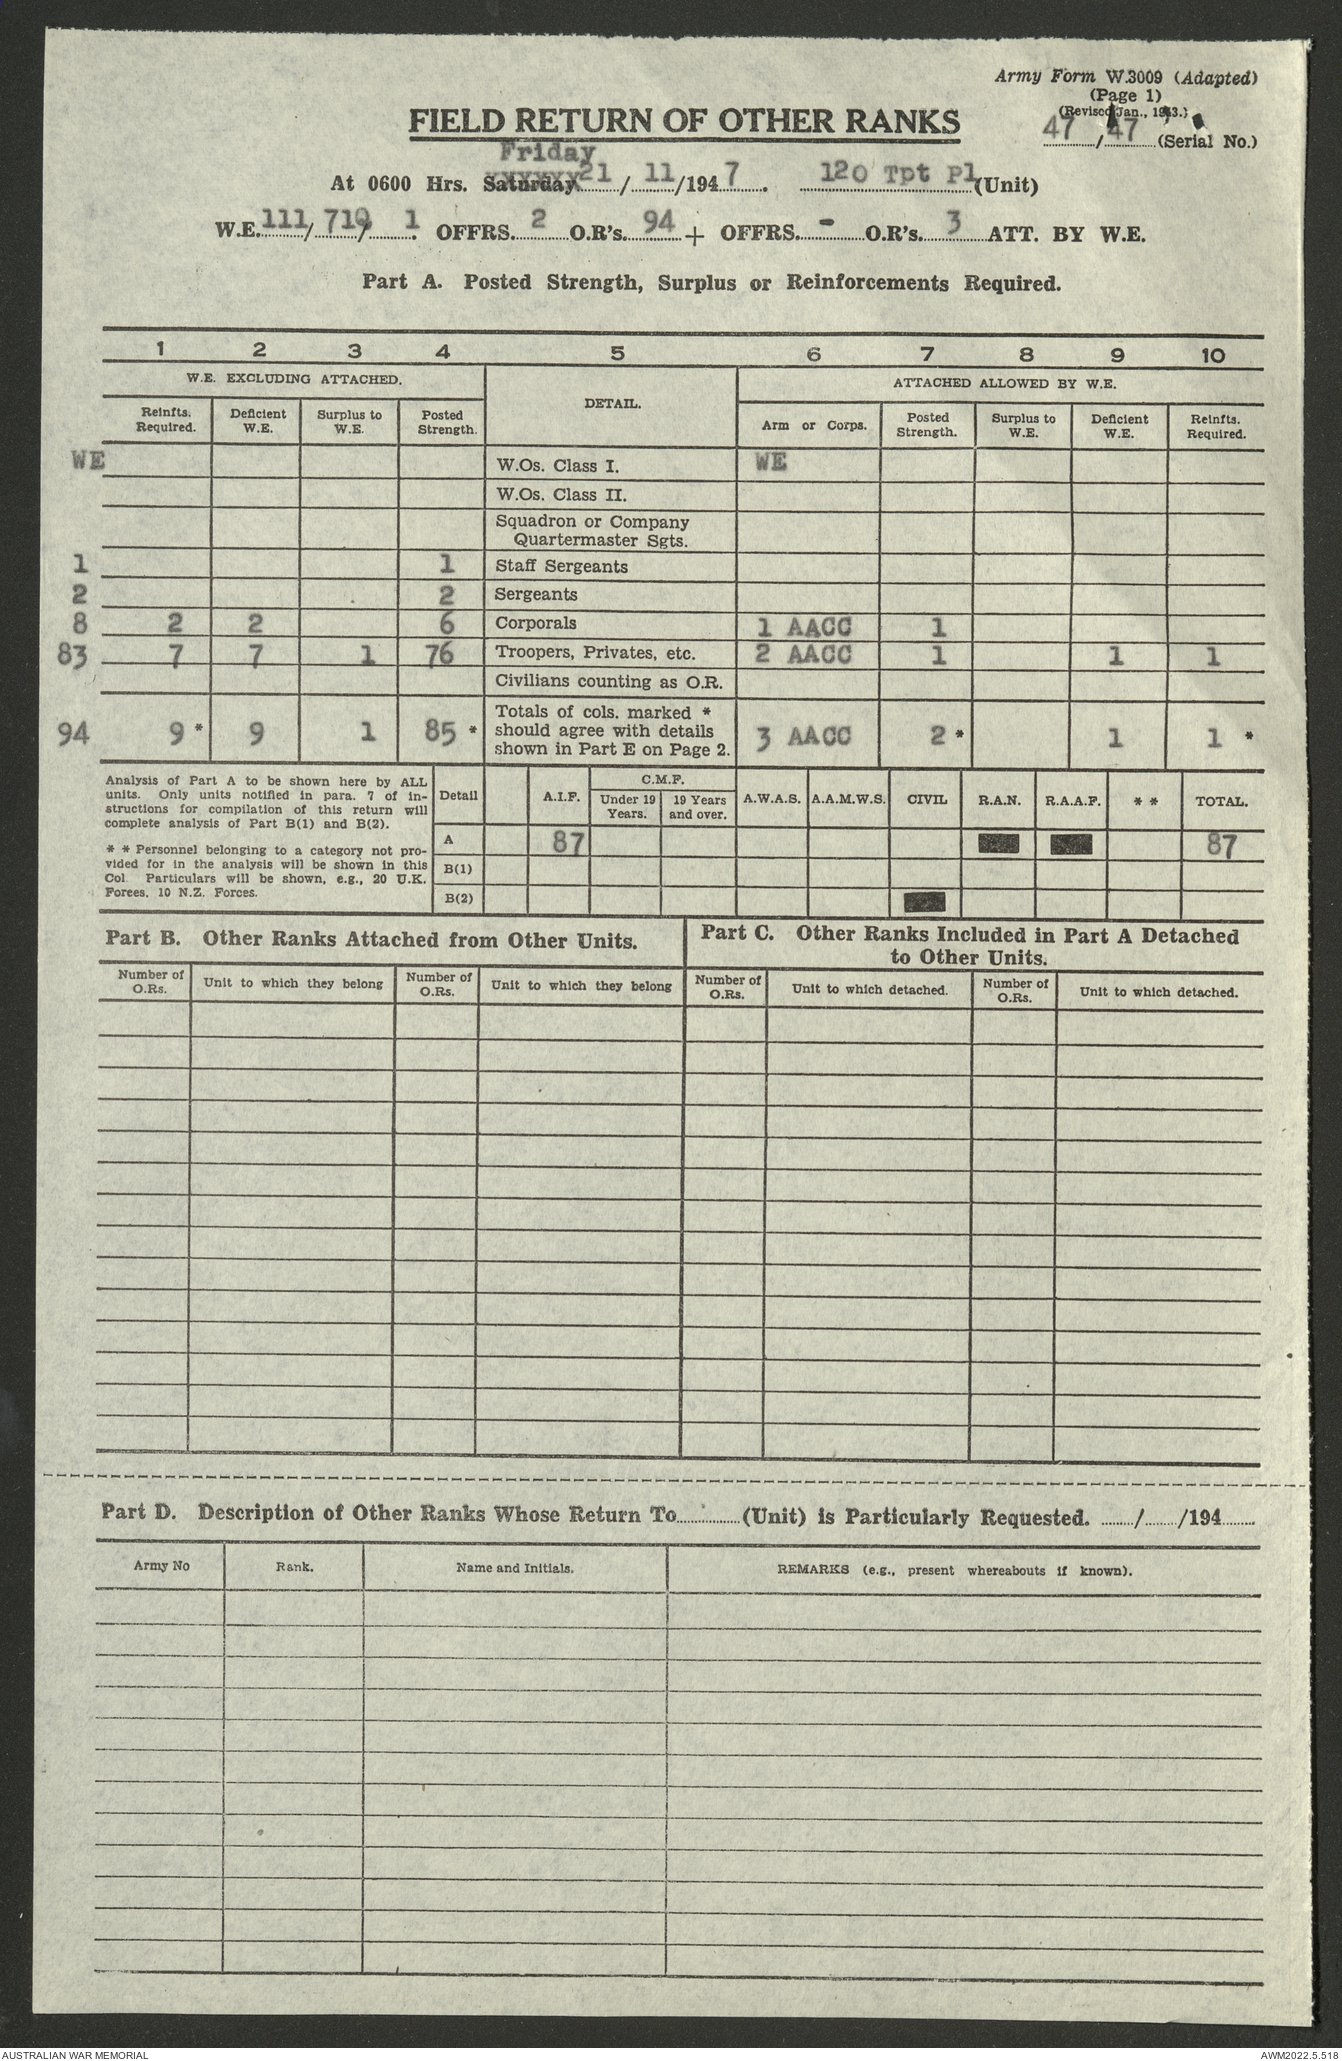 Army Form W.3009 (Adapted)
(Page 1)
(Revised Jan., 1943.)
47/47 (Serial No.)
FIELD RETURN OF OTHER RANKS
Friday
At 0600 Hrs. Saturday 21/11/1947. 120 Tpt Pl (Unit)
W.E. 111/719/1 OFFRS. 2 O.R's. 94 + OFFRS. - O.R's. 3 ATT. BY W.E.
Part A. Posted Strength, Surplus or Reinforcements Required.
1 2 3 4 5 6 7 8 9 10
W.E. EXCLUDING ATTACHED. DETAIL. ATTACHED ALLOWED BY W.E.
Reinfts. Required. Deficient W.E. Surplus to W.E. Posted Strength. Arm or Corps. Posted Strength. Surplus to W.E. Deficient W.E. Reinfts. Required.
WE W.Os. Class I. WE
W.Os. Class II.
Squadron or Company
Quartermaster Sgts.
1 1 Staff Sergeants
2 2 Sergeants
8 2 2 6 Corporals 1 AACC 1
83 7 7 1 76 Troopers, Privates, etc. 2 AACC 1 1 1
Civilians counting as O.R.
Totals of cols. marked *
94 9 * 9 1 85 * should agree with details 3 AACC 2 * 1 1 *
shown in Part E on Page 2.
Analysis of Part A to be shown here by ALL
units. Only units notified in para. 7 of in-
structions for compilation of this return will
complete analysis of Part B(1) and B(2).
* * Personnel belonging to a category not pro-
vided for in the analysis will be shown in this
Col. Particulars will be shown, e.g., 20 U.K.
Forces, 10 N.Z. Forces.
Detail A.I.F. C.M.F. Under 19 Years. 19 Years and over. A.W.A.S. A.A.M.W.S. CIVIL R.A.N. R.A.A.F. * * TOTAL.
A 87 87
B(1)
B(2)
Part B. Other Ranks Attached from Other Units.
Number of O.Rs. Unit to which they belong Number of O.Rs. Unit to which they belong
Part C. Other Ranks Included in Part A Detached
to Other Units.
Number of O.Rs. Unit to which detached. Number of O.Rs. Unit to which detached.
Part D. Description of Other Ranks Whose Return To.......... (Unit) is Particularly Requested. ....../....../194......
Army No Rank. Name and Initials. REMARKS (e.g., present whereabouts if known).
AUSTRALIAN WAR MEMORIAL
AWM2022.5.518